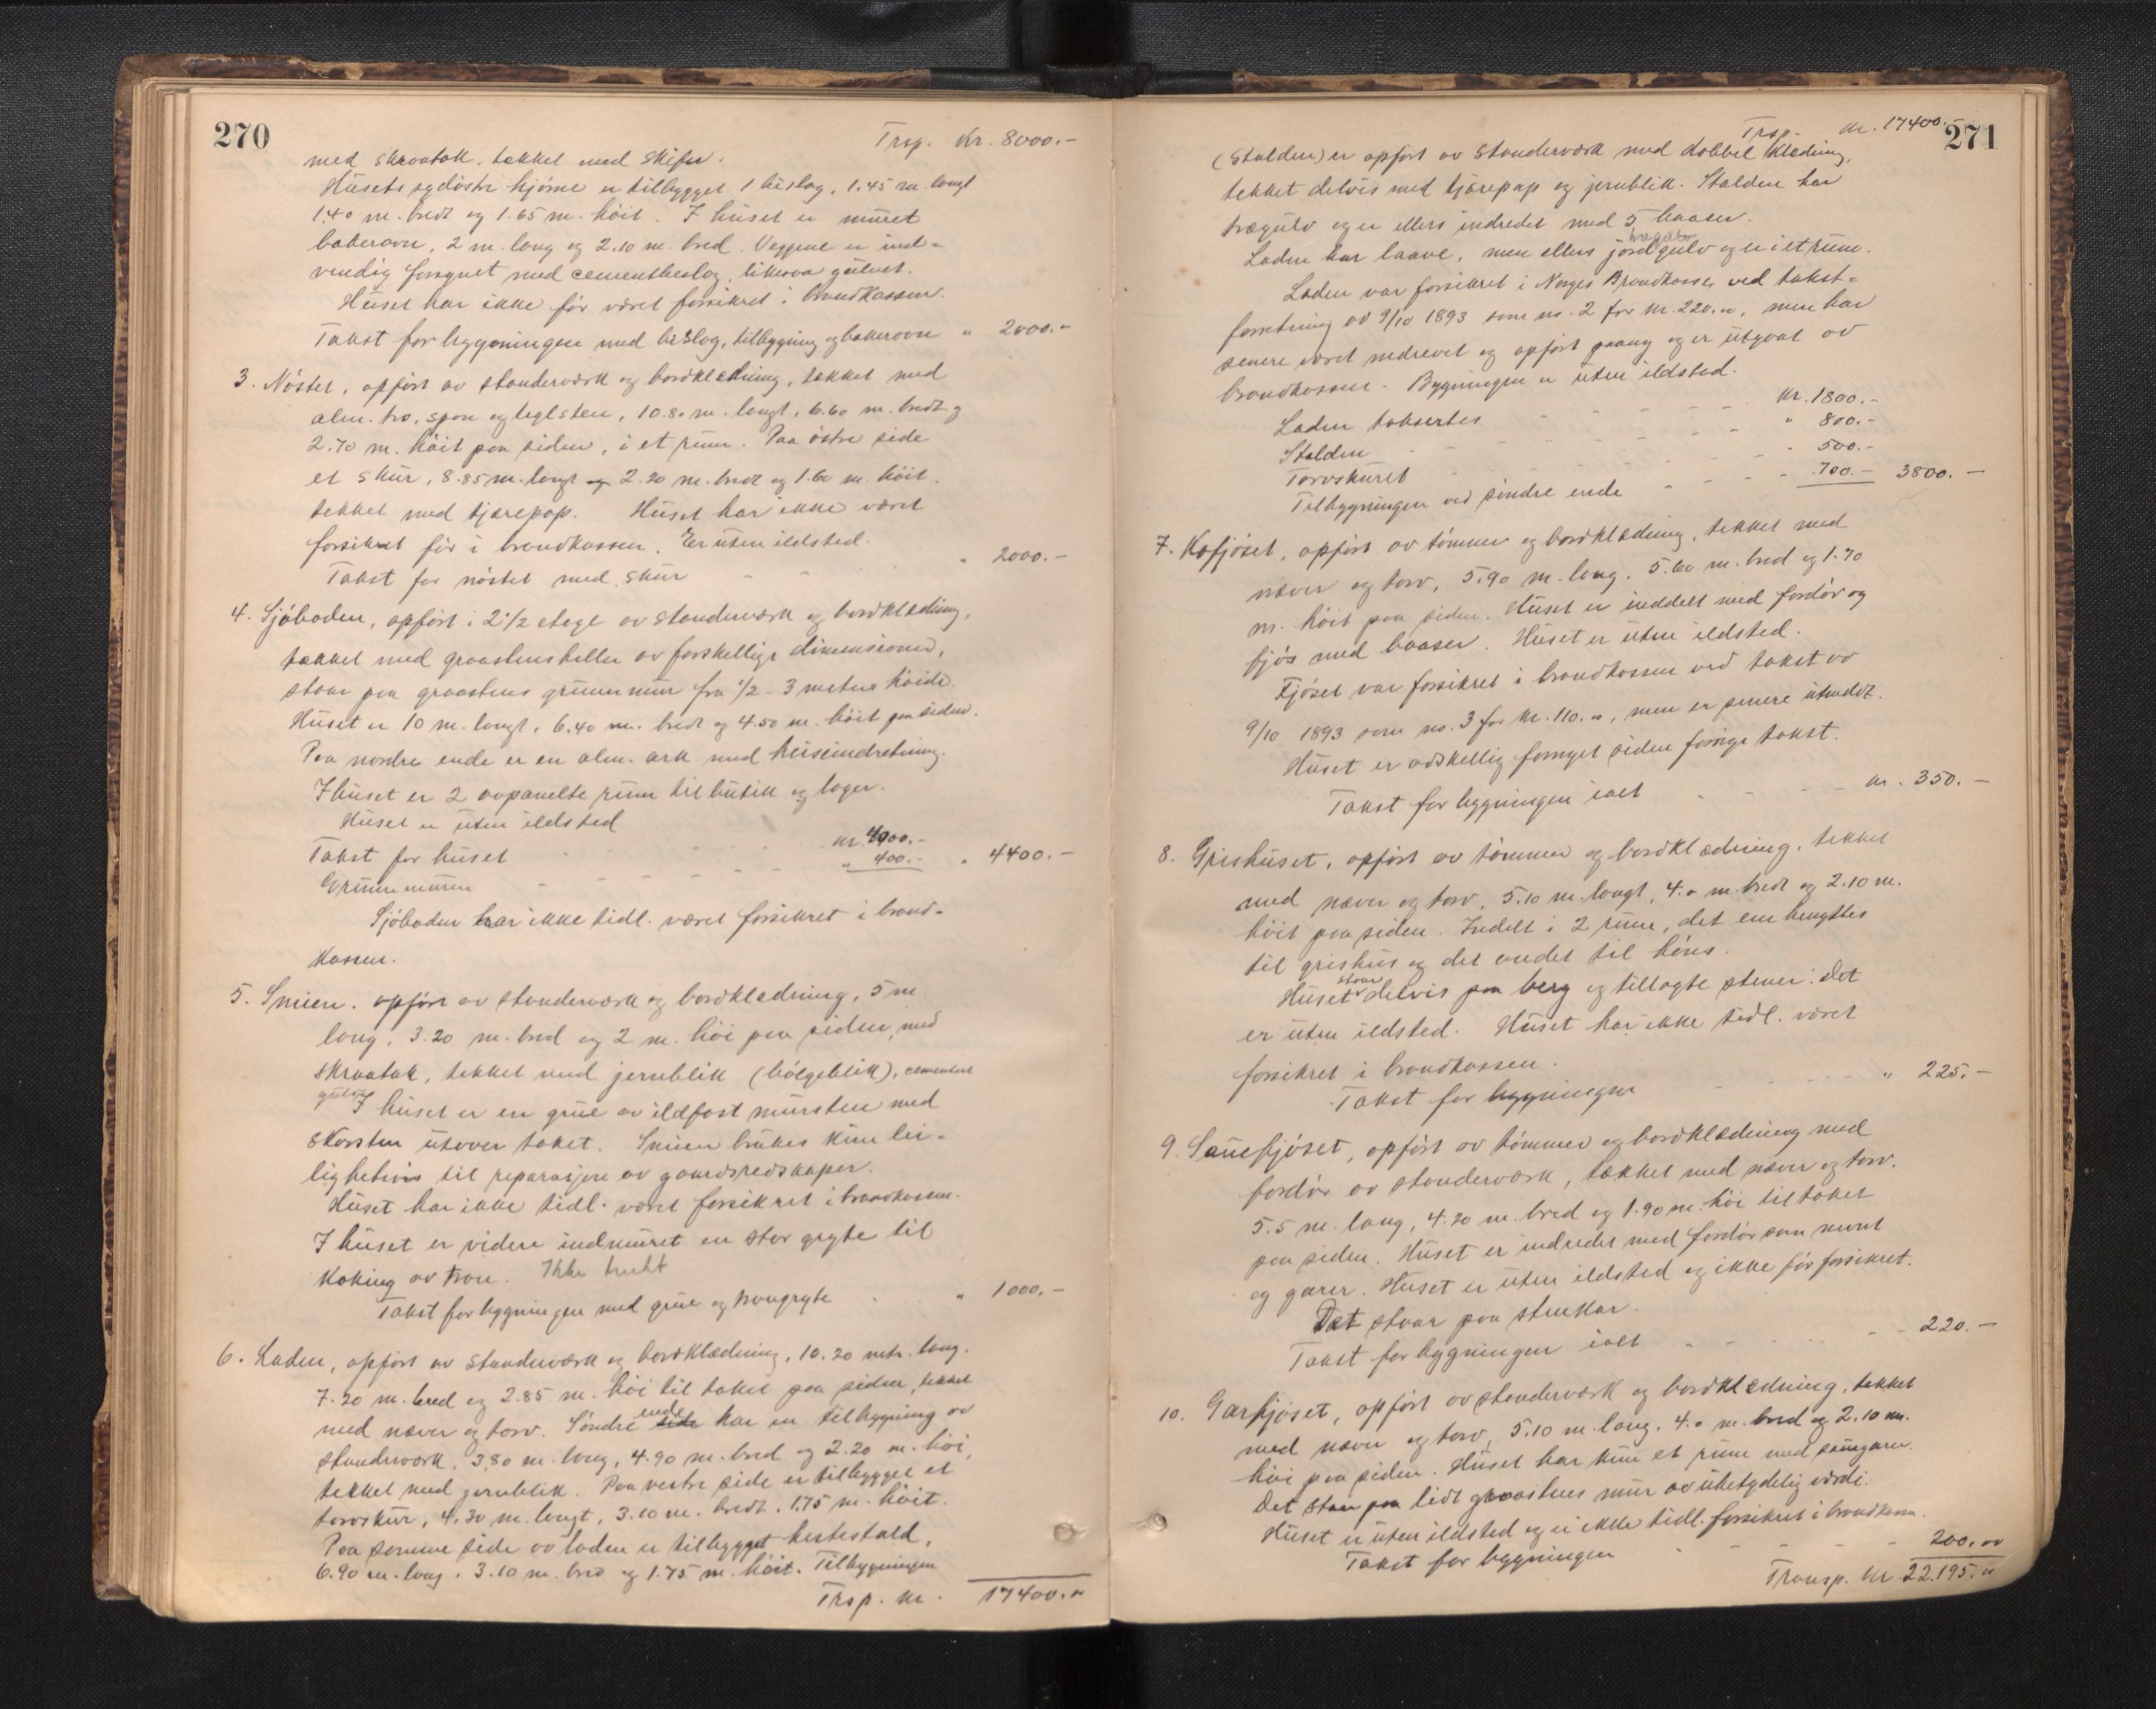 270
Trsp. Kr. 8000.-
med skraatak, tekket med skifer.
Husets sydöstre hjörne er tilbygget 1 bislag, 1.45 m. langt
1.40 m. bredt og 1.65 m. höit. I huset er muret
bakerovn, 2 m. lang og 2.10 m. bred. Veggene er ind-
vendig forsynet med cementbeslag, likesaa gulvet.
Huset har ikke för været forsikret i brandkassen.
Takst for bygningen med bislag, tilbygning og bakerovn " 2000.-
3. Nöstet, opfört av standerværk og bordklædning, tekket med
alm. tro, spon og teglsten, 10.80 m. langt, 6.60 m. bredt og
2.70 m. höit paa siden, i et rum. Paa östre side
et skur, 8.85 m. langt og 2.20 m. bredt og 1.60 m. höit,
tekket med tjærepap. Huset har ikke været
forsikret för i brandkassen. Er uten ildsted.
Takst for nöstet med skur - - " 2000.-
4. Sjöboden, opfört i 2 1/2 etage av standerværk og bordklædning,
tækket med graastensheller av forskellige dimensioner,
staar paa graastens grunnmur fra 1/2 - 3 meters höide.
Huset er 10 m. langt, 6.40 m. bredt og 4.50 m. höit paa siden.
Paa nordre ende er en alm. ark med heiseindretning.
I huset er 2 avpanelte rum til butik og lager.
Huset er uten ildsted
Takst for huset - - - - kr. 4000.-
Grunnmuren - - - - - " 400.- " 4400.-
Sjöboden har ikke tidl. været forsikret i brand-
kassen.
5. Smien, opfört av standerværk og bordklædning, 5 m.
lang, 3.20 m. bred og 2 m. höi paa siden, med
skraatak, tekket med jernblik (bölgeblik), cementert
gulv. I huset er en grue av ildfast mursten med
skorsten utover taket. Smien brukes kun lei-
lighetsvis til reparasjon av gaardsredskaper.
Huset har ikke tidl. været forsikret i brandkassen.
I huset er videre indmuret en stor gryte til
koking av tran. Ikke brukt
Takst for bygningen med grue og trangryte - " 1000.-
6. Laden, opfört av standerværk og bordklædning, 10.20 mtr. lang,
7.20 m. bred og 2.85 m. höi til taket paa siden, tekket
med næver og torv. Söndre side ende har en tilbygning av
standerværk, 3.80 m. lang, 4.90 m. bred og 2.20 m. höi,
tekket med jernblik. Paa vestre side er tilbygget et
torvskur, 4.30 m. langt, 3.10 m. bredt, 1.75 m. höit.
Paa samme side av laden er tilbygget hestestald,
6.90 m. lang, 3.10 m. bred og 1.75 m. höit. Tilbygningen
Trsp. kr. 17400.00
271
Trsp. kr. 17400.-
(Stalden) er opfört av standerværk med dobbel klædning,
tekket delvis med tjærepap og jernblik. Stalden har
trægulv og er ellers indredet med 5 baaser.
tregulv
Laden har laave, men ellers jordgulv og er i et rum.
Laden var forsikret i Norges Brandkasse ved takst-
forretning av 9/10 1893 som no. 2 for kr. 220.00, men har
senere været nedrevet og opfört paany og er utgaat av
brandkassen. Bygningen er uten ildsted.
Laden taksertes - - - - - kr. 1800.-
Stalden - - - - - " 800.-
Torvskuret - - - - - " 500.-
Tilbygningen ved söndre ende - - - - " 700.- 3800.-
7. Kofjöset, opfört av tömmer og bordklædning, tekket med
næver og torv, 5.90 m. lang, 5.60 m. bred og 1.70
m. höit paa siden. Huset er inddelt med fordör og
fjös med baaser. Huset er uten ildsted.
Fjöset var forsikret i brandkassen ved takst av
9/10 1893 som no. 3 for kr. 110.00, men er senere utmeldt.
Huset er adskellig fornyet siden forrige takst.
Takst for bygningen ialt - - - - kr. 350.-
8. Grishuset, opfört av tömmer og bordklædning, tekket
med næver og torv, 5.10 m. langt, 4.0 m. bredt og 2.10 m.
höit paa siden. Indelt i 2 rum, det ene benyttes
til grishus og det andet til höns.
Huset staar delvis paa berg og tillagte stener. Det
er uten ildsted. Huset har ikke tidl. været
forsikret i brandkassen.
Takst for bygningen - - - - " 225.-
9. Sauefjöset, opfört av tömmer og bordklædning med
fordör av standerværk, tækket med næver og torv.
5.5 m. lang, 4.20 m. bred og 1.90 m. höi til taket
paa siden. Huset er indredet med fordör som nevnt
og garer. Huset er uten ildsted og ikke för forsikret.
Det staar paa stenkar.
Takst for bygningen ialt - - - - 220.-
10. Garfjöset, opfört av standerværk og bordklædning, tekket
med næver og torv, 5.10 m. lang, 4.0 m. bred og 2.10 m.
höi paa siden. Huset har kun et rum med sauegarer.
Det staar paa lidt graastens mur av ubetydelig værdi.
Huset er uten ildsted og er ikke tidl. forsikret i brandkassen.
Takst for bygningen - - - - 200.00
Transp. kr. 22.195.00